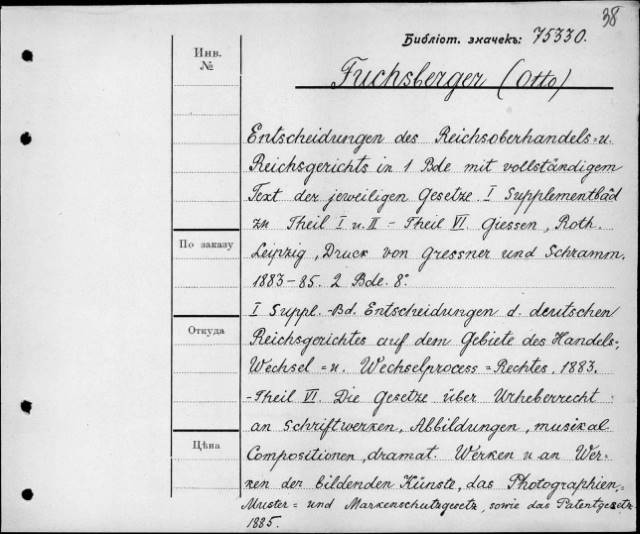 38
Библіот. значекъ: 75330.
Инв.
№
Fuchsberger (Otto)
Entscheidungen des Reichsoberhandels-u.
Reichsgerichts in 1 Bde mit vollständigem
Text der jeweiligen Gesetze I Supplementbäd
zu Theil I u. II - Theil VI. Giessen, Roth.
По заказу
Leipzig, Druck von Gressner und Schramm.
1883-85. 2 Bde. 8°.
I Suppl.-Bd. Entscheidungen d. deutschen
Откуда
Reichsgerichtes auf dem Gebiete des Handels-,
Wechsel = u. Wechselprocess = Rechtes. 1883.
-Theil VI. Die Gesetze über Urheberrecht
an Schriftwerken, Abbildungen, musikal
Цѣна
Compositionen, dramat. Werken u an Wer-
ken der bildenden Künste, das Photographien,-
Muster = und Markenschutzgesetz, sowie das Patentgesetz
1885.